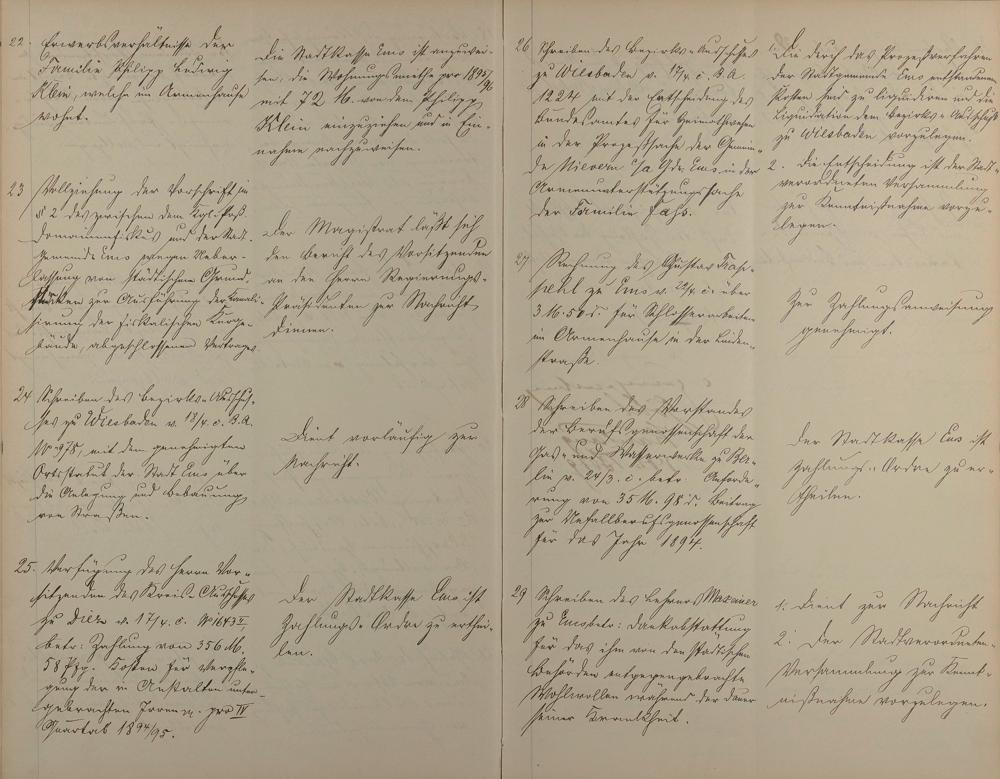 22. Erwerbsverhältnisse der
Familie Philipp Ludwig
Klein, welche im Armenhause
wohnt.
Die Stadtkasse Ems ist anzuwei-
sen, die Wohnungsmiethe pro 1895/96
mit 72 M. von dem Philipp
Klein einzuziehen und in Ein-
nahme nachzuweisen.
23 Vollziehung der Vorschrift in
§ 2 des zwischen dem Kgl. Preuß.
Domainenfiskus und der Stadt-
gemeinde Ems wegen Ueber-
lassung von städtischen Grund-
stücken zur Ausführung der Canali-
sirung der fiskalischen Kurge-
bäude, abgeschlossenen Vertrages.
Der Magistrat läßt sich
den Bericht des Vorsitzenden
an den Herrn Regierungs-
Präsidenten zur Nachricht
dienen.
24 Schreiben des Bezirks-Ausschus-
ses zu Wiesbaden v. 18/4. c. B.A.
No 978, mit dem genehmigten
Ortsstatut der Stadt Ems über
die Anlegung und Bebauung
von Straßen.
Dient vorläufig zur
Nachricht.
25. Verfügung des Herrn Vor-
sitzenden des Kreis-Ausschusses
zu Diez v. 17/4. c. No 1643 II
betr: Zahlung von 356 M.
58 Pfg. Kosten für Verpfle-
gung der in Anstalten unter-
gebrachten Irren pro IV
Quartal 1894/95.
Der Stadtkasse Ems ist
Zahlungs-Ordre zu erthei-
len.
26 Schreiben des Bezirks-Ausschusses
zu Wiesbaden v. 17/4. c. B.A.
1224 mit der Entscheidung des
Bundesamtes für Heimathwesen
in der Prozeßsache der Gemein-
de Nievern c/a Gde. Ems in der
Armenunterstützungssache
der Familie Pahs.
1. Die durch das Prozeßverfahren
der Stadtgemeinde Ems entstandenen
Kosten sind zu liquidiren und die
Liquidation dem Bezirks-Ausschuß
zu Wiesbaden vorzulegen.
2. Die Entscheidung ist der Stadt-
verordneten Versammlung
zur Kenntnißnahme vorzu-
legen.
27 Rechnung des Gustav
zu Ems v. 24/4. c. über
3 M. 50 d. für Schlosserarbeiten
im Armenhause in der Linden-
straße.
Zur Zahlungsanweisung
genehmigt.
28 Schreiben des Vorstandes
der Berufsgenossenschaft der
Gas- und Wasserwerke zu Ber-
lin v. 24/3. c. betr: Anforde-
rung von 35 M. 98 d. Beitrag
zur Unfallberufsgenossenschaft
für das Jahr 1894.
Der Stadtkasse Ems ist
Zahlungs-Ordre zu er-
theilen.
29 Schreiben des Lehrers Maxeiner
zu Ems betr: Dankabstattung
für das ihm von den städtischen
Behörden entgegengebrachte
Wohlwollen während der Dauer
seiner Krankheit.
1. Dient zur Nachricht
2. Der Stadtverordneten-
Versammlung zur Kennt-
nißnahme vorzulegen.